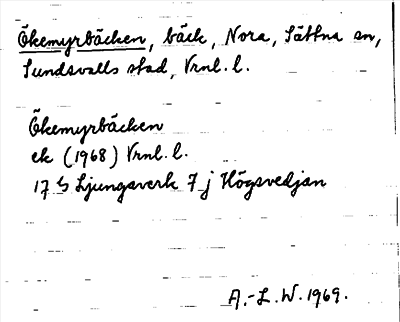 Ökemyrbäcken, bäck, Nora, Sättna sn,
Sundsvalls stad, Vrnl. l.
Ökemyrbäcken
ek (1968) Vrnl. l.
17 G Ljungaverk 7 j Högsvedjan
A.-L. W. 1969.